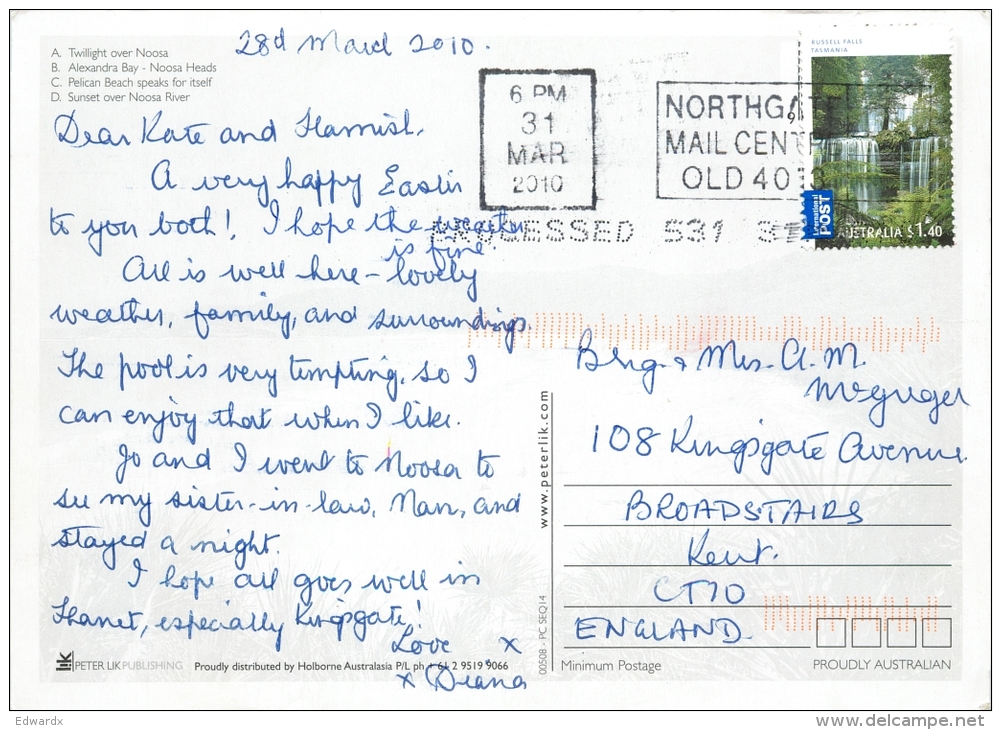 28d March 2010.
A. Twillight over Noosa
B. Alexandra Bay - Noosa Heads
C. Pelican Beach speaks for itself
D. Sunset over Noosa River
RUSSELL FALLS
TASMANIA
International
POST
AUSTRALIA $1.40
6 PM
31
MAR
2010
NORTHGATE
MAIL CENT
QLD 4013
PROCESSED 531
Dear Kate and Hamish,
A very happy Easter
to you both! I hope the weather
is fine.
All is well here - lovely
weather, family, and surroundings.
The pool is very tempting, so I
can enjoy that when I like.
Jo and I went to Noosa to
see my sister-in-law, Nan, and
stayed a night.
I hope all goes well in
Thanet, especially Kingsgate!
Love x
x Diana
Brig. & Mrs. A. M.
McGregor
108 Kingsgate Avenue
BROADSTAIRS
Kent.
CT10
ENGLAND
www.peterlik.com
00508 - PC SEQ14
lik PETER LIK PUBLISHING
Proudly distributed by Holborne Australasia P/L ph + 61 2 9519 9066
Minimum Postage
PROUDLY AUSTRALIAN
Edwardx
delcampe.net